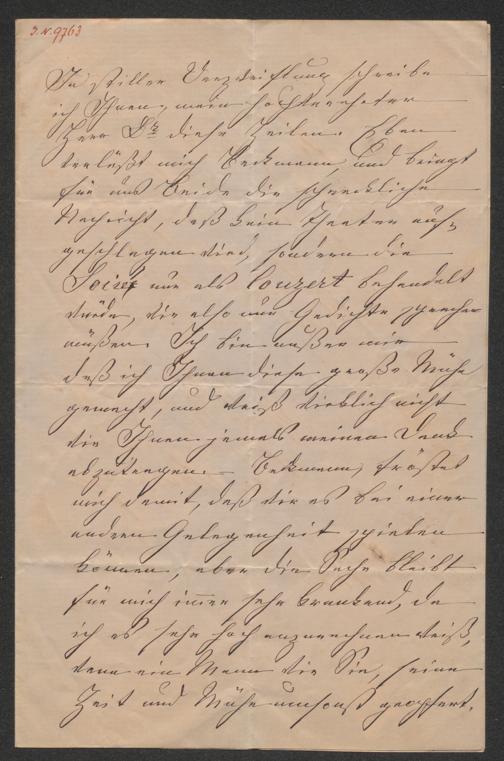 J. N. 9763
In stiller Verzweiflung schreibe
ich Ihnen, mein hochverehrter
Herr Dr diese Zeilen. Eben
verläßt mich Beckmann, und bringt
für uns Beide die schreckliche
Nachricht, daß kein Theater auf-
geschlagen wird, sondern die
Soirée nur als Conzert behandelt
würde, wir also nur Gedichte sprechen
müßen. Ich bin außer mir
daß ich Ihnen diese große Mühe
gemacht, und weiß wirklich nicht
wie Ihnen jemals meinen Dank
abzutragen. – Beckmann, tröstet
mich damit, daß wir es bei einer
andern Gelegenheit spielen
können, aber die Sache bleibt
für mich immer sehr kränkend, da
ich es sehr hoch anzurechnen weiß,
wenn ein Mann wie Sie, seine
Zeit und Mühe umsonst geopfert.